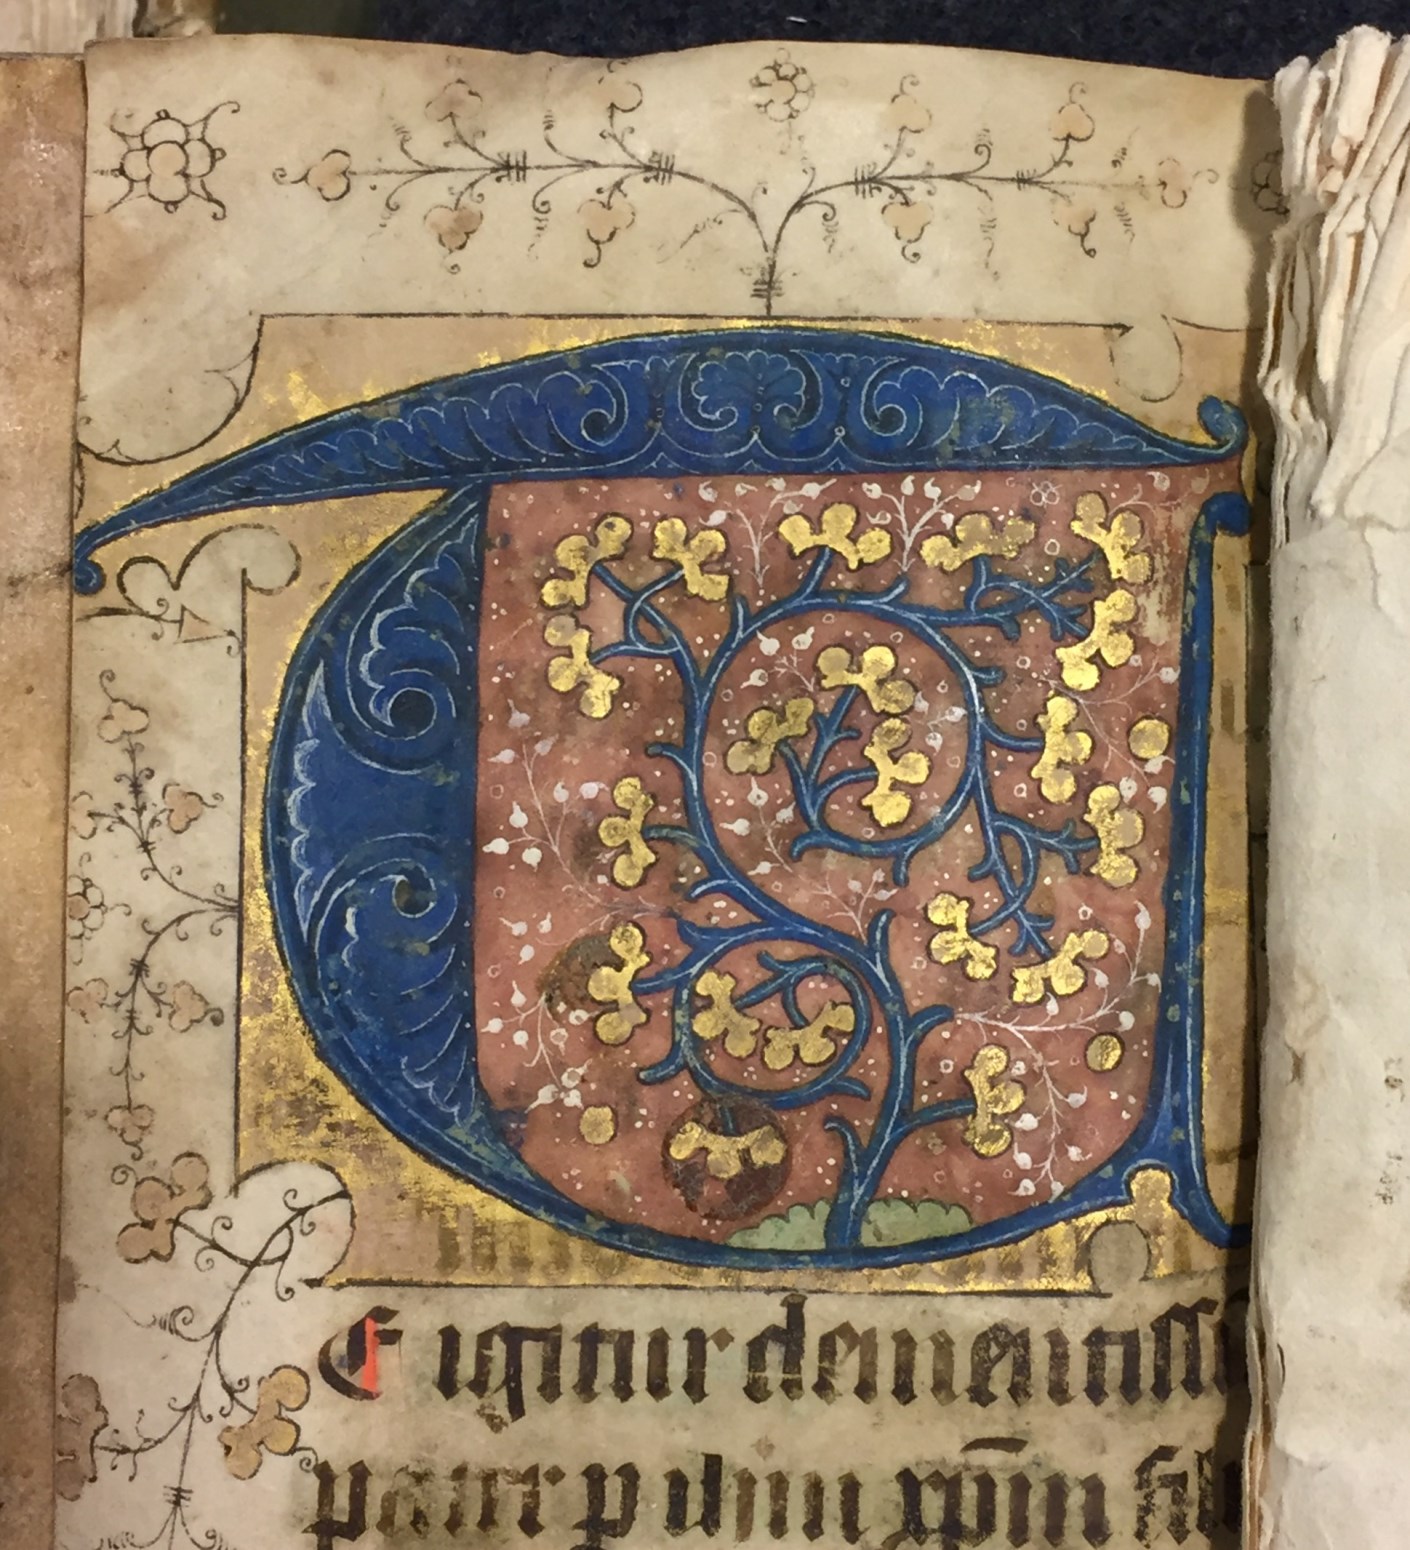 T
E igitur clementissi
pater p ihm xpm fil